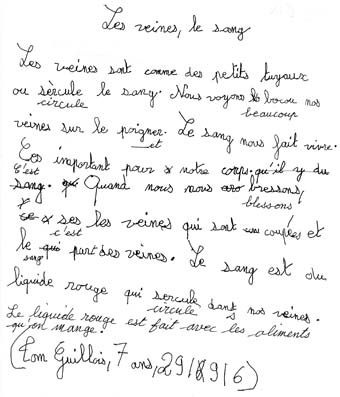 Les veines, le sang
Les veines sont comme des petits tuyaux
ou sèrcule le sang. Nous voyons bocou nos
circule
beaucoup
veines sur le poigner. Le sang nous fait vivre.
et
Ces important pour notre corps qu'il y du
C'est
sang. Quand nous nous bressons,
blessons
ses les veines qui sont coupées et
c'est
le qui part des veines. Le sang est du
sang
liquide rouge qui sercule dans nos veines.
circule s
Le liquide rouge est fait avec les aliments
qu'on mange.
(Tom Guillois, 7 ans, 29/9/6)